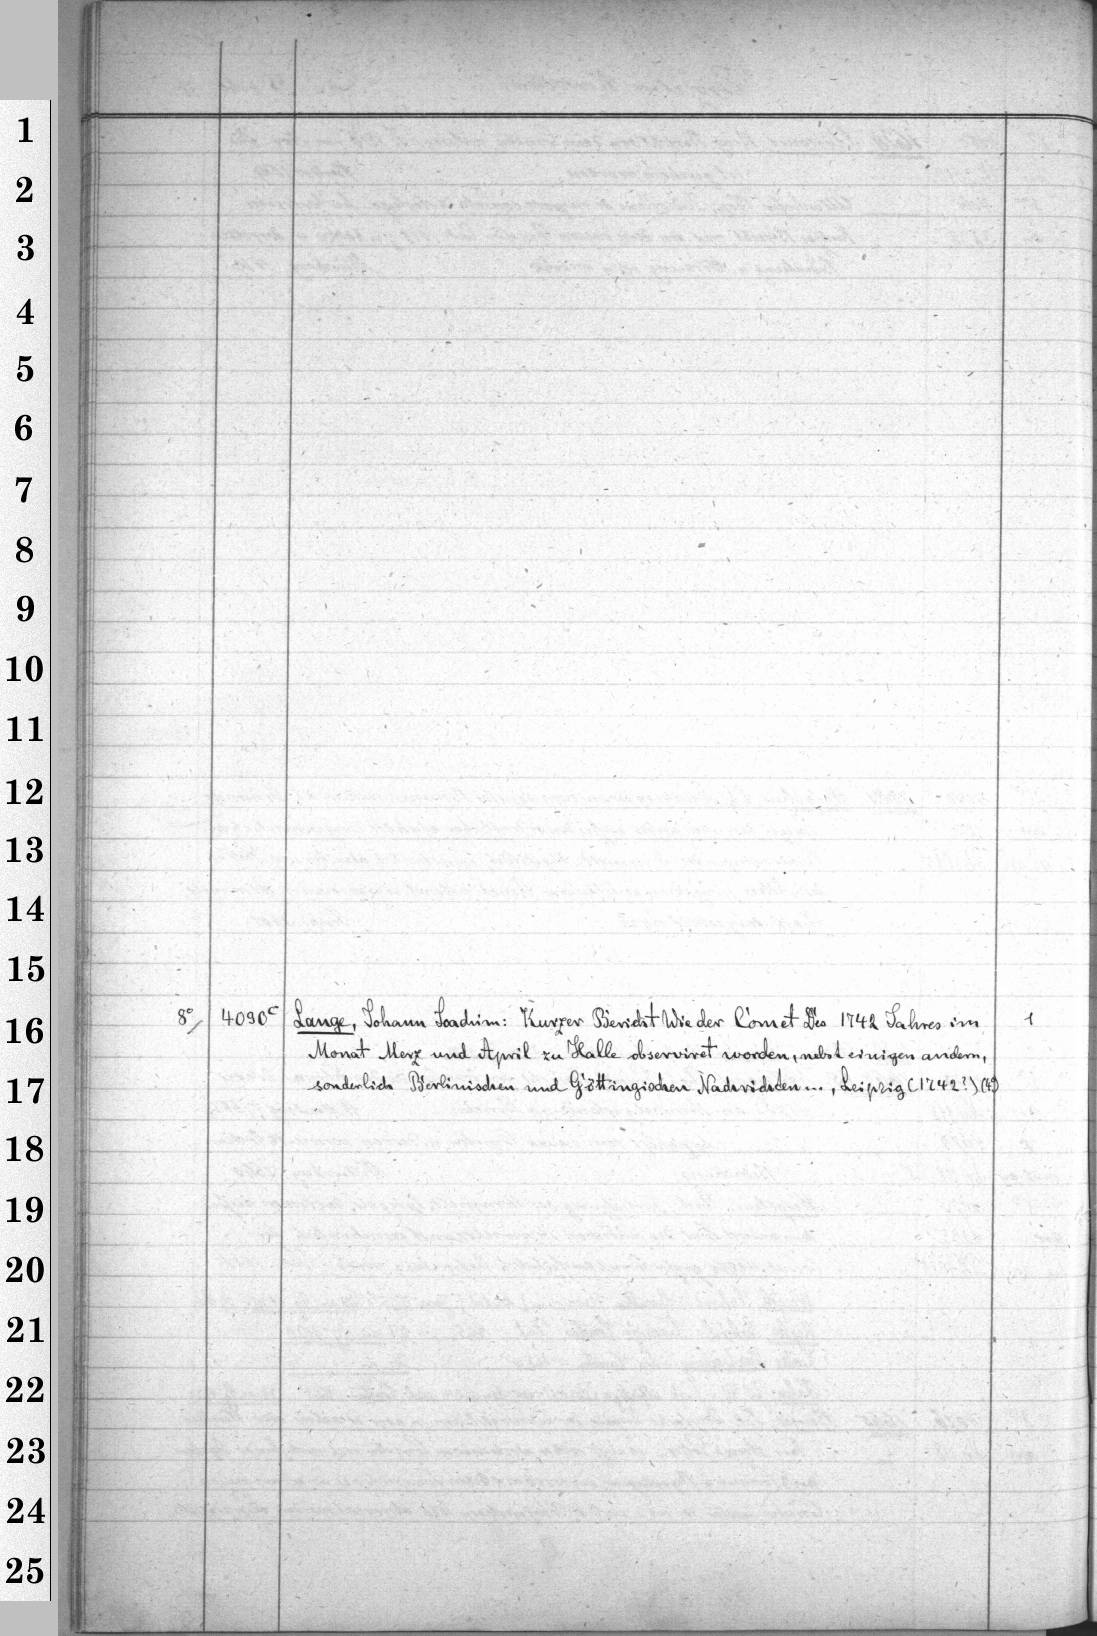 1
2
3
4
5
6
7
8
9
10
11
12
13
14
15
16
17
18
19
20
21
22
23
24
25
8°/ 4090c Lange, Johann Joachim: Kurzer Bericht Wie der Comet Des 1742 Jahres im 1
Monat Merz und April zu Halle observiret worden, nebst einigen andern,
sonderlich Berlinischen und Göttingischen Nachrichten ..., Leipzig (1742?) (4°)